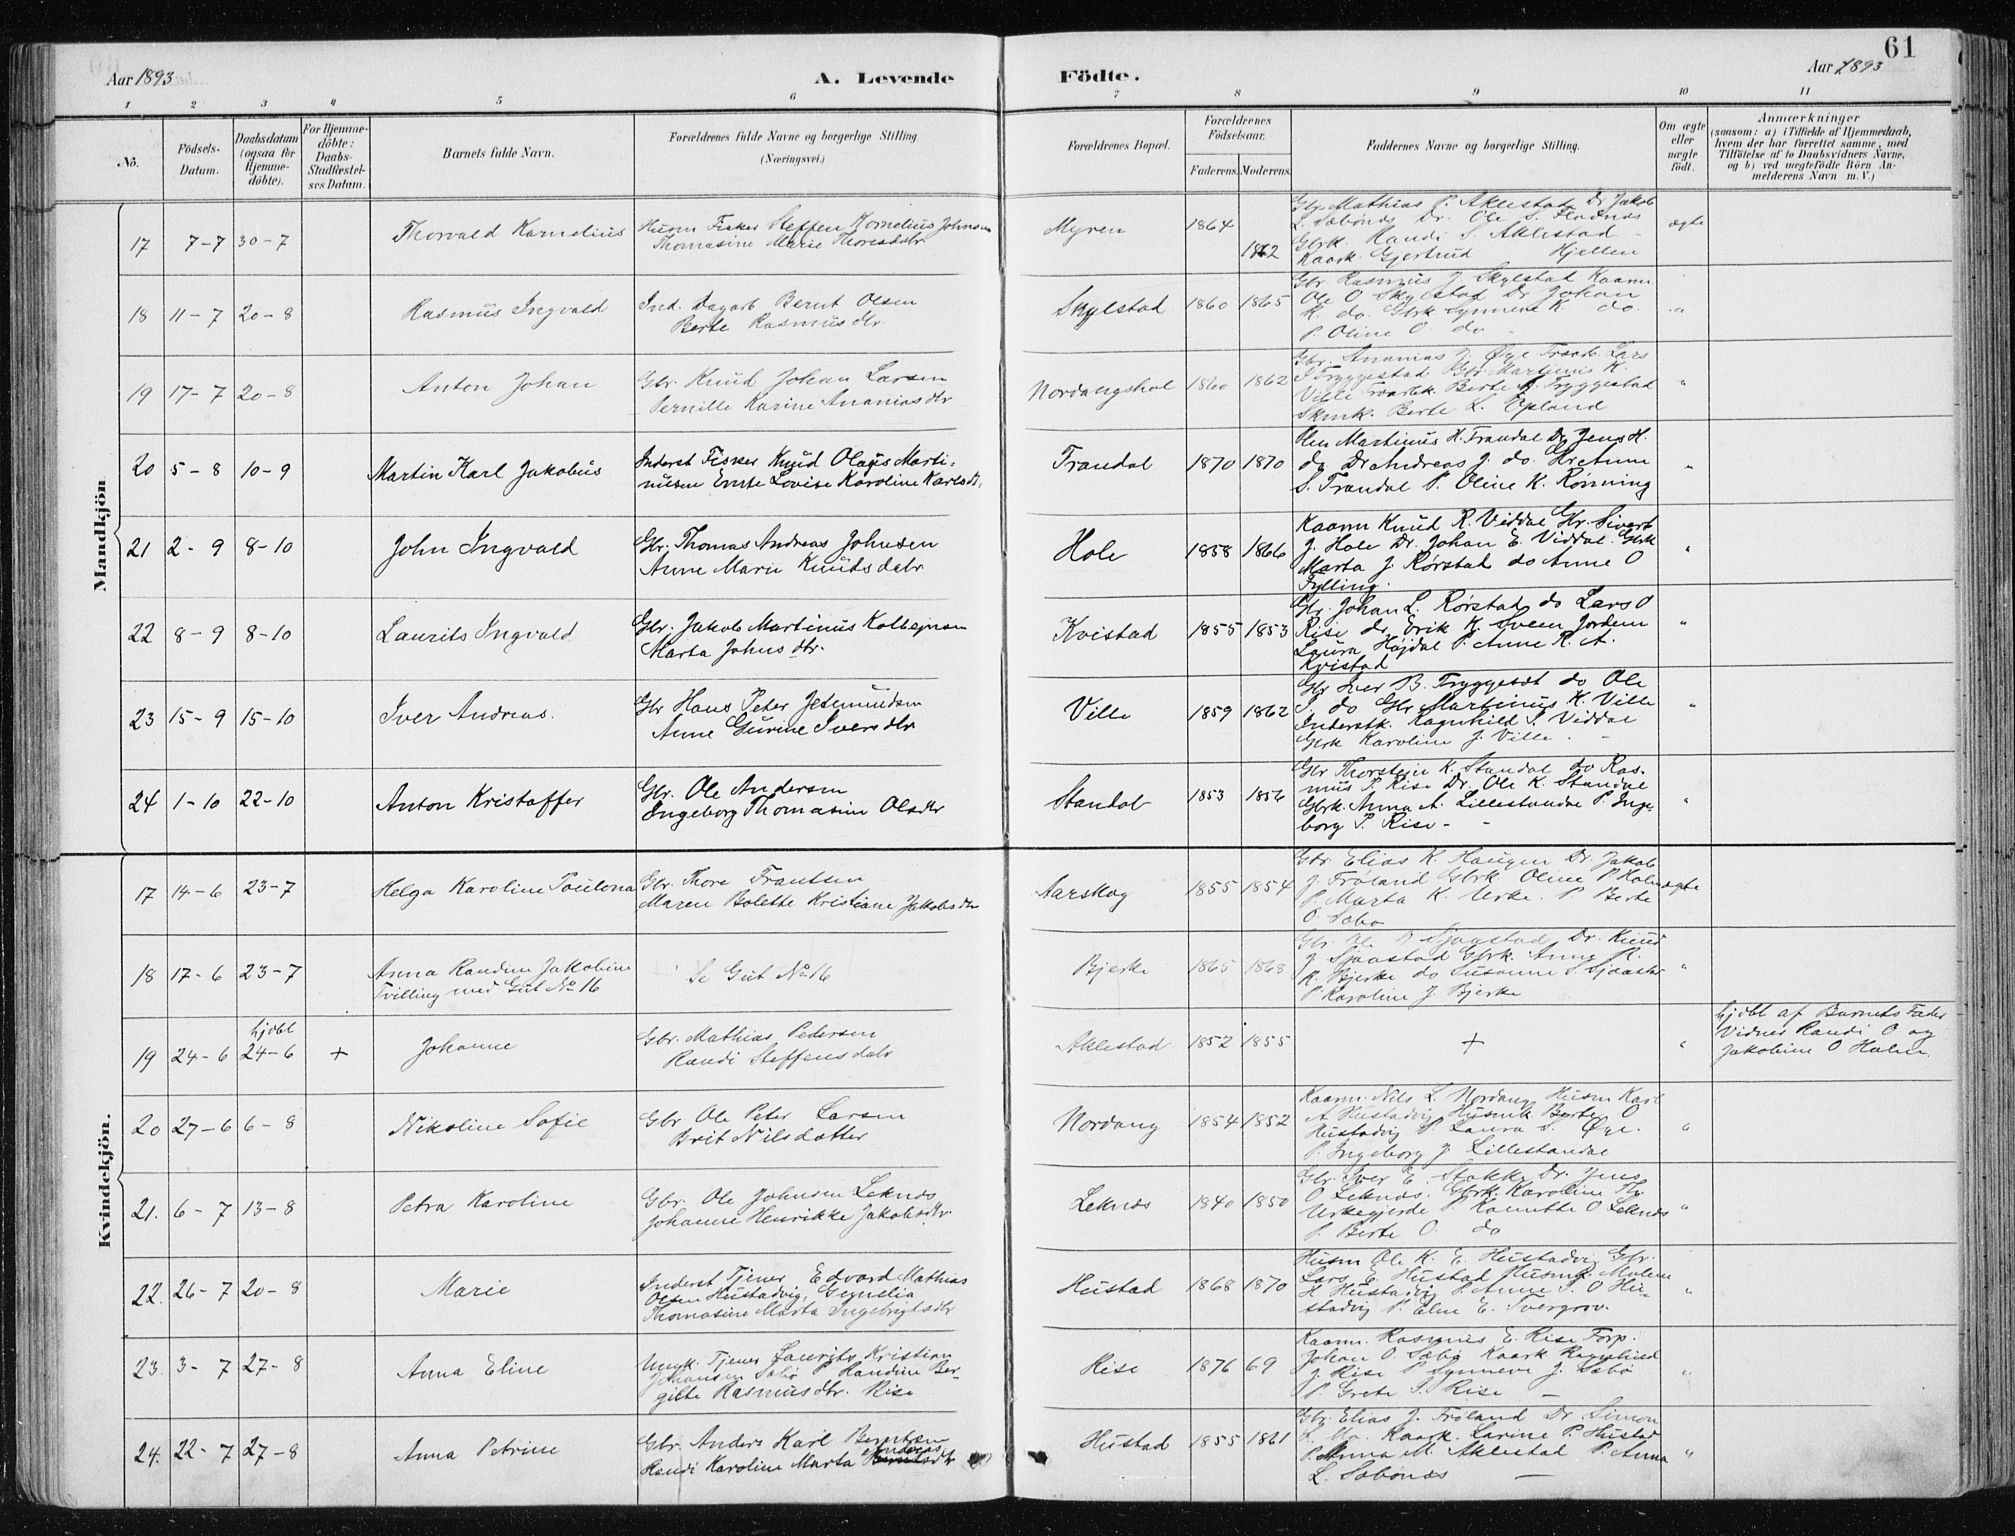 61
Aar 1893
A. Levende Födte.
Aar 1893
1 2 3 4 5 6 7 8 9 10 11
Nô.
Födsels-Datum.
Daabsdatum (ogsaa for Hjemme-döbte).
For Hjemme-döbte: Daabs-Stadfæstel-ses Datum.
Barnets fulde Navn.
Forældrenes fulde Navne og borgerlige Stilling. (Næringsvei.)
Forældrenes Bopæl.
Forældrenes Födselsaar.
Faderens. Moderens.
Faddernes Navne og borgerlige Stilling.
Om ægte eller uægte födt.
Anmærkninger (saasom: a) i Tilfælde af Hjemmedaab, hvem der har forrettet samme, med Tilföielse af to Daabsvidners Navne, og b) ved uægtefödte Börn An-melderens Navn m. V.)
Mandkjön
17 7-7 30-7 Thorvald Kornelius Husm Fisker Steffen Kornelius Johnsen Myren 1864 1862 Gbr Mathias P. Aklestad Dr Jakob ægte
Thomasine Marie Thoresdtr L. Sæbönes Dr. Ole S. Flodnæs
Gbrk. Randi S. Aklestad
Kaark. Gjertrud Hjellen
18 11-7 20-8 Rasmus Ingvald Ind. Dagarb Bernt Olsen Skylstad 1860 1865 Gbr Rasmus J Skylstad Kaarm "
Berte Rasmusdtr. Ole O. Skylstad Dr Johan
K. do. Gbrk Synneve K do.
P. Oline O. do
19 17-7 20-8 Anton Johan Gbr. Knud Johan Larsen Nordangshol 1860 1862 Gbr. Ananias J. Øye "
Pernille Karine Ananiasdtr I Tryggestad Gbr. Martinus K.
Ville Berte Tryggestad
Berte L.
20 5-8 10-9 Martin Karl Jakobus Inderst Fisker Knud Olaus Marti- Trandal 1870 1870 Martinus H. Trandal Dr Jens H. "
nusen Lovise Karoline Karlsdt. do Dr Andreas J do.
S. Trandal P. Oline K. Rønning
21 2-9 8-10 John Ingvald Gbr. Thomas Andreas Johnsen Hole 1858 1866 Kaarm Knud R. Viddal Gbr. Sivert "
Anne Marie Knudsdatr J. Hole Dr. Johan E. Viddal. Gbrk
Marta J. Rørstad do Anne O
Fylling.
22 8-9 8-10 Laurits Ingvald Gbr. Jakob Martinus Kolbejnsen Kvistad 1855 1853 Gbr. Johan L. Rørstad do Lars O "
Marta Johnsdtr. Rise dr. Erik K.
Laura Højdal P. Anne R. A.
Kvistad
23 15-9 15-10 Iver Andreas. Gbr Hans Peter Jetmundsen Ville 1859 1862 Gbr Iver B. Tryggestdt do Ole "
Anne Gurine Iversdtr I. do Gbr Martinus K. Ville
Inderstk. Ragnhild I. Viddal
Gbrk Karoline J. Ville.
24 1-10 22-10 Anton Kristoffer Gbr. Ole Andersen Standal 1853 1856 Gbr Thorstein K. Standal do Ras- "
Ingeborg Thomasine Olsdtr mus P. Rise Dr. Ole K. Standal
Gbrk. Anna A. Lillestandal P. Inge-
borg P. Rise -
Kvindekjön.
17 14-6 23-7 Helga Karoline Paulona Gbr. Thore Frantsen Aarskog 1855 1854 Gbr. Elias K. Haugen Dr. Jakob ægte
Maren Bolette Kristiane Jakobsdtr J. Frøland Gbrk. Oline P. Holm
P Marta K. Urke. P Berte
O. Sæbø
18 17-6 23-7 Anna Randine Jakobine Se Gut No 16 Bjerke 1865 1868 Gbr. Ole Sjaastad Dr. Knud "
Tvilling med Gut No 16 J Sjaastad Gbrk. Anne R.
K. Bjerke do Susanne S. Sjaastd
P Karoline J. Bjerke
19 24-6 hjdbt 24-6 + Johanne Gbr. Mathias Pedersen Aklestad 1852 1855 + " hjdbt af Barnets Fader
Randi Steffensdatr Vidner Randi O og
Jakobine O Holm.
20 27-6 6-8 Nikoline Sofie Gbr Ole Peter Larsen Nordang 1854 1852 Kaarm. Nils L. Nordang Husm Karl "
Brit Nilsdatter A Hustadvig Husmk Berte O
Hustadvig P Laura S. Øye.
P. Ingeborg J Lillestandal
21. 6-7 13-8 Petra Karoline Gbr. Ole Johnsen Leknes Leknes 1840 1850 Gbr. Iver E. Stokke Dr. Jens "
Johanne Henrikke Jakobsdtr O Leknes. Gbrk. Karoline
Urkegjerde P O Leknes
P. Berte O. do
22. 26-7 20-8 Marie Inderst Tjener Edvard Mathias Hustad 1868 1870 Husm Ole K. E. Hustadvig Gbr. "
Olsen Hustadvig, Lars E. Hustad Husmk. Malene
Thomasine Marta Ingebrigtsdtr H Hustadvig P. Anne P. O Hu-
stadvig P. E.
23. 3-7 27-8 Anna Eline Ungk. Tjener Laurits Kristian Rise 1876 69 Kaarm. Rasmus E. Rise Forp. "
Johansen Sæbø P Randine Ber- Johan O. Sæbø Kaark Ragnhild
gitte Rasmusdtr. Rise J. Rise P Synneve J. Sæbø
P. Grete P. Rise
24. 22-7 27-8 Anna Petrine Gbr. Anders Karl Berntsen Hustad 1855 1861 Gbr. Elias J. Frøland Dr Simon "
Randi Karoline Marta Andreasdtr Kaark. Larine P. Hustad
P. Anna M. Aklestad P. Anna
L. Sæbönes